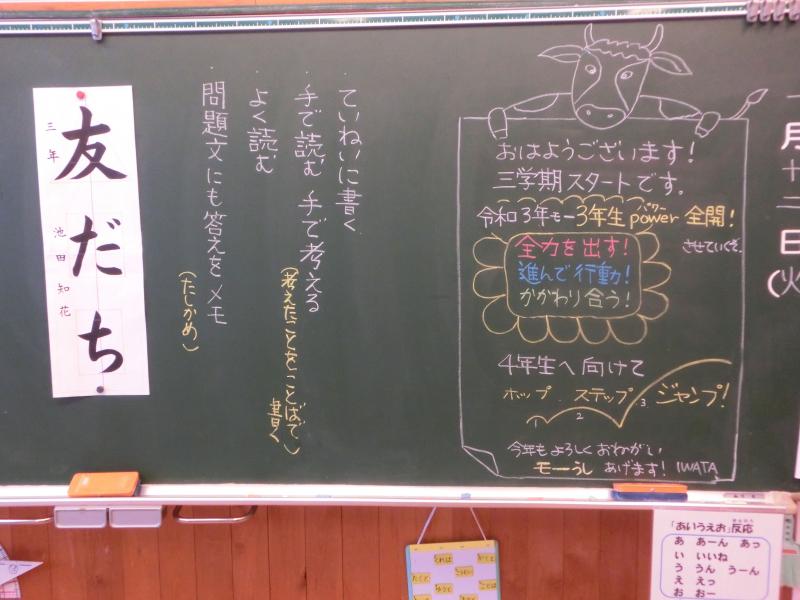 一月十二日(火
おはようございます!
三学期スタートです。
令和3年モー3年生power全開!
パワー
させていくぞ。
全力を出す!
進んで行動!
かかわり合う!
4年生へ向けて
ホップ ステップ ジャンプ!
1 2 3
今年もよろしくおねがい
モーうし あげます! IWATA
・ていねいに書く
・手で読む 手で考える
(考えたことをことばで書く)
・よく読む
・問題文にも答えをメモ
(たしかめ)
友だち
三年 池田知花
「あいうえお」反応
はんのう
あ あーん あっ
い いいね
う うん うーん
え えっ
お おー